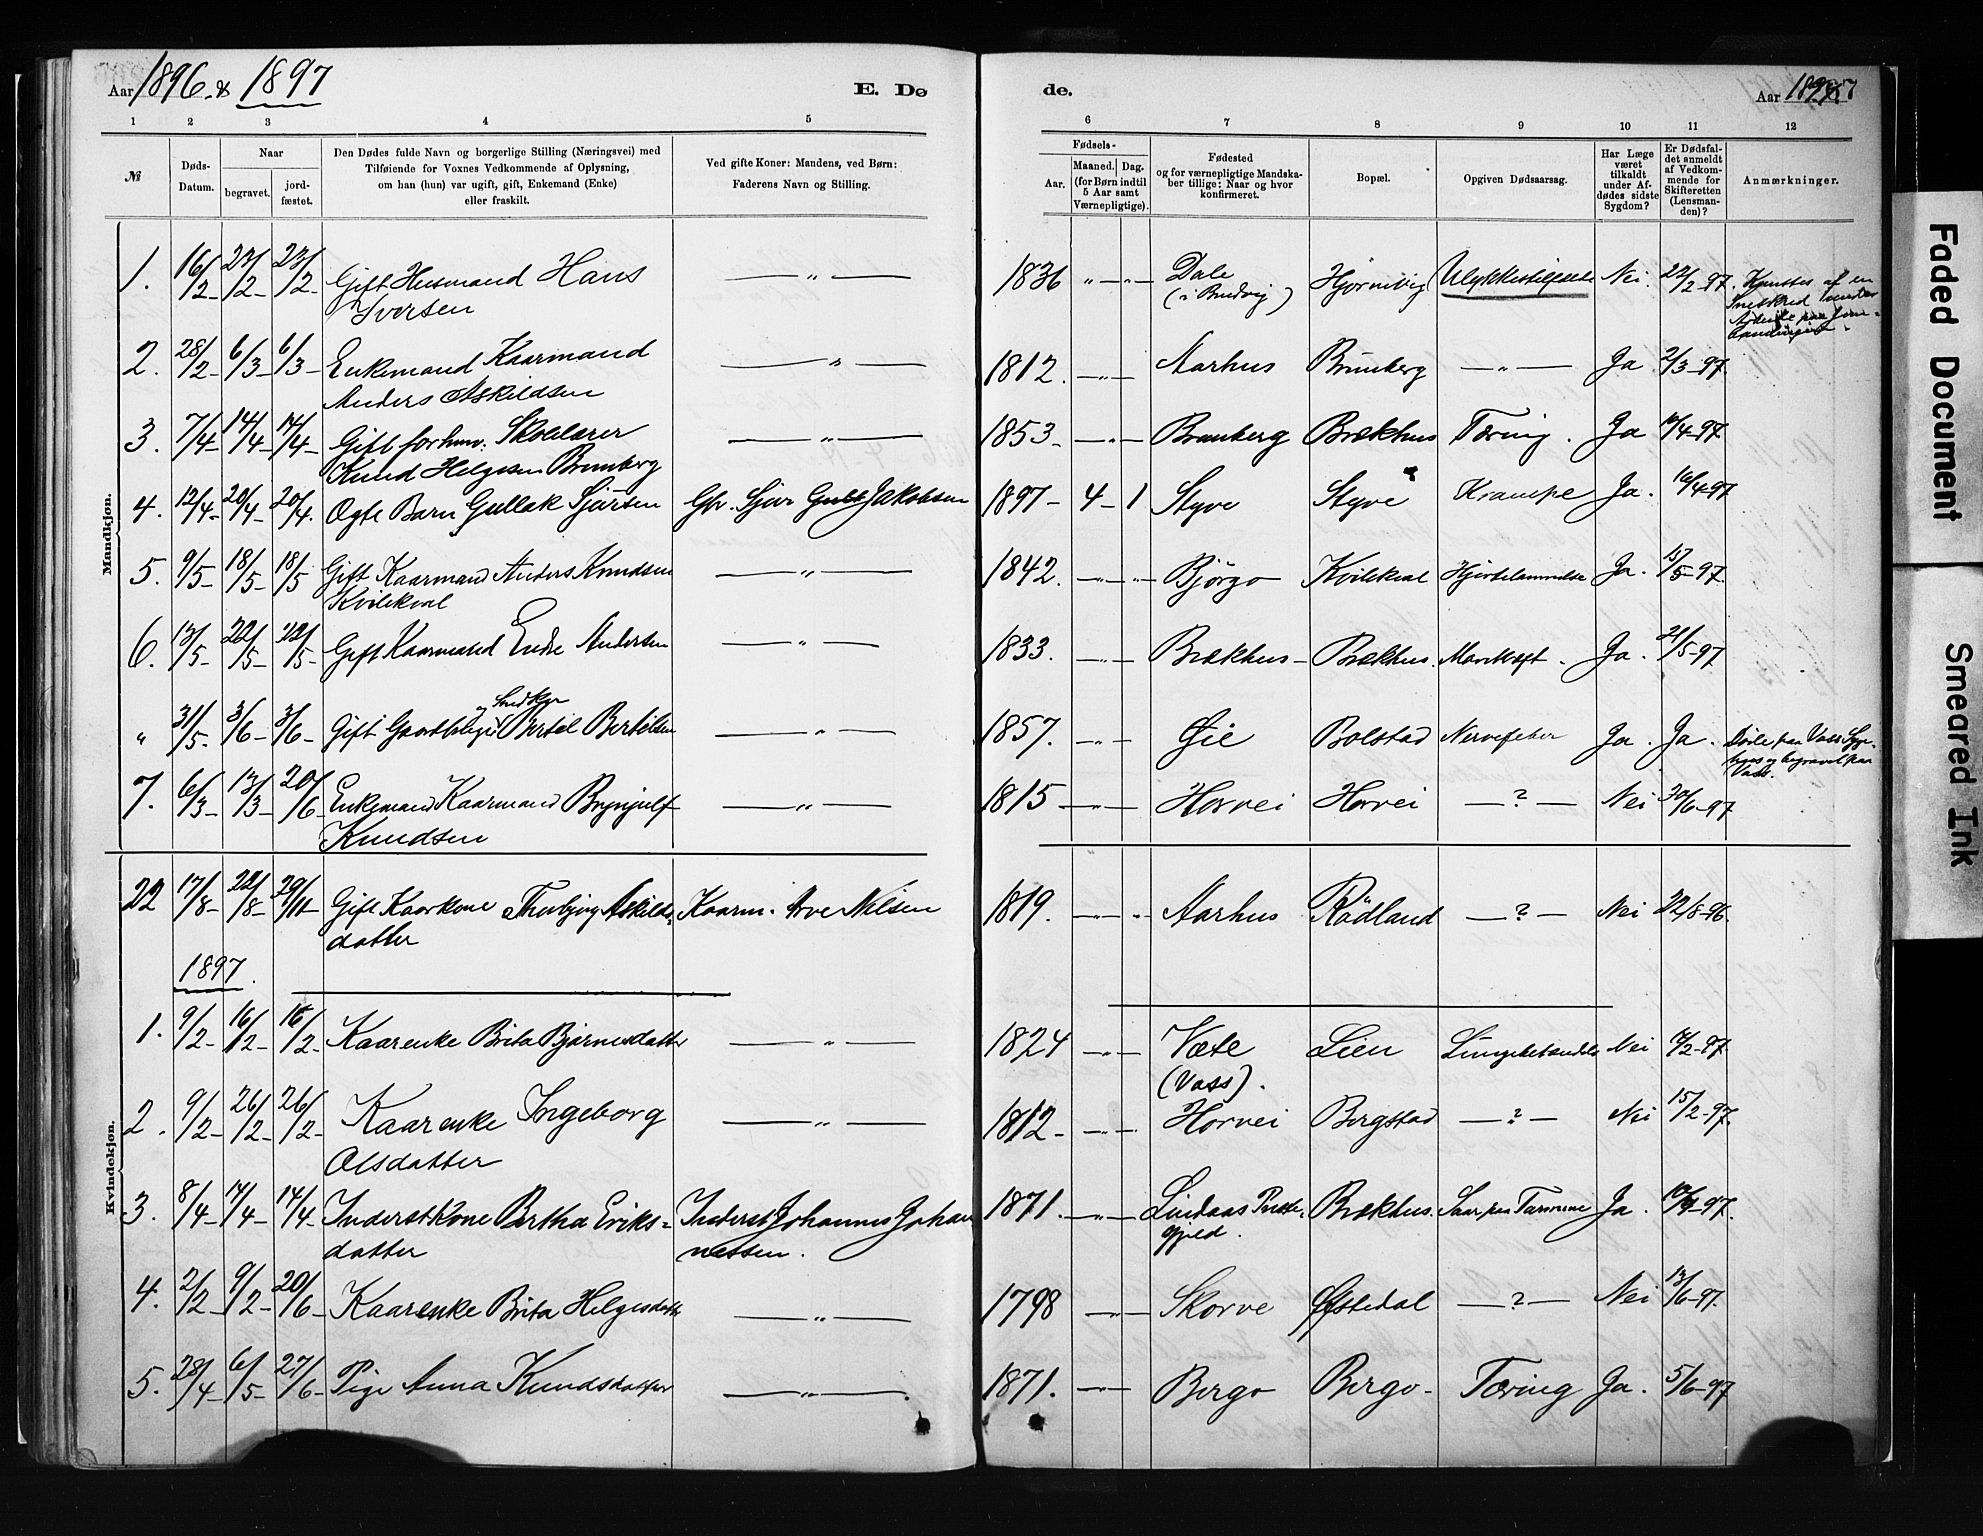 Aar 1896 & 1897 E. Dø de. Aar 1897
1 2 3 4 5 6 7 8 9 10 11 12
№ Døds-Datum. Naar begravet. jord-fæstet. Den Dødes fulde Navn og borgerlige Stilling (Næringsvei) med Tilføiende for Voxnes Vedkommende af Oplysning, om han (hun) var ugift, gift, Enkemand (Enke) eller fraskilt. Ved gifte Koner: Mandens, ved Børn: Faderens Navn og Stilling. Fødsels- Aar. Maaned. Dag. (for Børn indtil 5 Aar samt Værnepligtige). Fødested og for værnepligtige Mandskaber tillige: Naar og hvor konfirmeret. Bopæl. Opgiven Dødsaarsag. Har Læge været tilkaldt under Afdødes sidste Sygdom? Er Dødsfaldet anmeldt af Vedkommende for Skifteretten (Lensmanden)? Anmærkninger.
Mandkjøn.
1. 16/2 23/2 23/2 Gift Husmand Hans — " — 1836 " " Dale Hjørnivig Ulykkestilfælde Nei. 22/2-97.
Iversen
2. 28/2 6/3 6/3 Enkemand Kaarmand — " — 1812. — " — Aarhus Brunberg — " — Ja 2/3-97.
Anders Askildsen
3. 7/4 14/4 14/4 Gift forhenv. Skolelærer — " — 1853 — " — Brunberg Brækhus Tæring. Ja 10/4-97.
Knud Helgesen Brunberg
4. 12/4 20/4 20/4. Ægte Barn Gullak Sjursen Gbr. Sjur Jakobsen 1897 4 1 Styve Styve Krampe Ja. 16/4-97
5. 9/5 18/5 18/5 Gift Kaarmand Anders Knudsen — " — 1842. — " — Bjørgo Kvilekval Hjertelammelse Ja. 15/5-97.
Kvilekval
6. 13/5 22/5 22/5 Gift Kaarmand Endre Andersen — " — 1833. — " — Brækhus Brækhus. Marekræft. Ja. 21/5-97
" 31/5 3/6 3/6 Gift Gaardbruger og Snedker Bertel Bertelsen — " — 1857. — " — Gil Bolstad Nervefeber Ja. Ja. Døde paa Vass Syge-
hus og begravet paa
Vass.
7. 6/3 13/3 20/6 Enkemand Kaarmand Brynjulf — " — 1815 — " — Horvei Horvei — ? — Nei 30/6-97
Knudsen
Kvindekjøn.
22 17/8 22/8 29/11 Gift Kaarkone Thorbjørg Askilds- Kaarm. Arve Nilsen 1819. — " — Aarhus Rødland — ? — Nei 22/8-96.
datter
1897.
1. 9/2 16/2 16/2 Kaarenke Brita Bjørnesdatter — " — 1824 — " — Væte Lien Nei 12/2-97.
(Vass).
2. 9/2 26/2 26/2 Kaarenke Ingeborg — " — 1812 — " — Horvei Bergstad — ? — Nei 15/2-97.
Olsdatter
3. 8/4 14/4 14/4 Inderstkone Bertha Eriks- Inderst Johannes Johan 1871. — " — Lindaas Præste- Brækhus. Saar paa Tarmene Ja. 10/4-97.
datter nessen. gjeld.
4. 2/2 9/2 20/6 Kaarenke Brita Helgesdatt — " — 1798 — " — Skorve Øfstedal — ? — Nei 13/6-97.
5. 28/4 6/5 27/6 Pige Anna Knudsdatter — " —. 1871. — " — Bergo Bergo Tæring Ja. 5/6-97
Faded Document
Smeared Ink